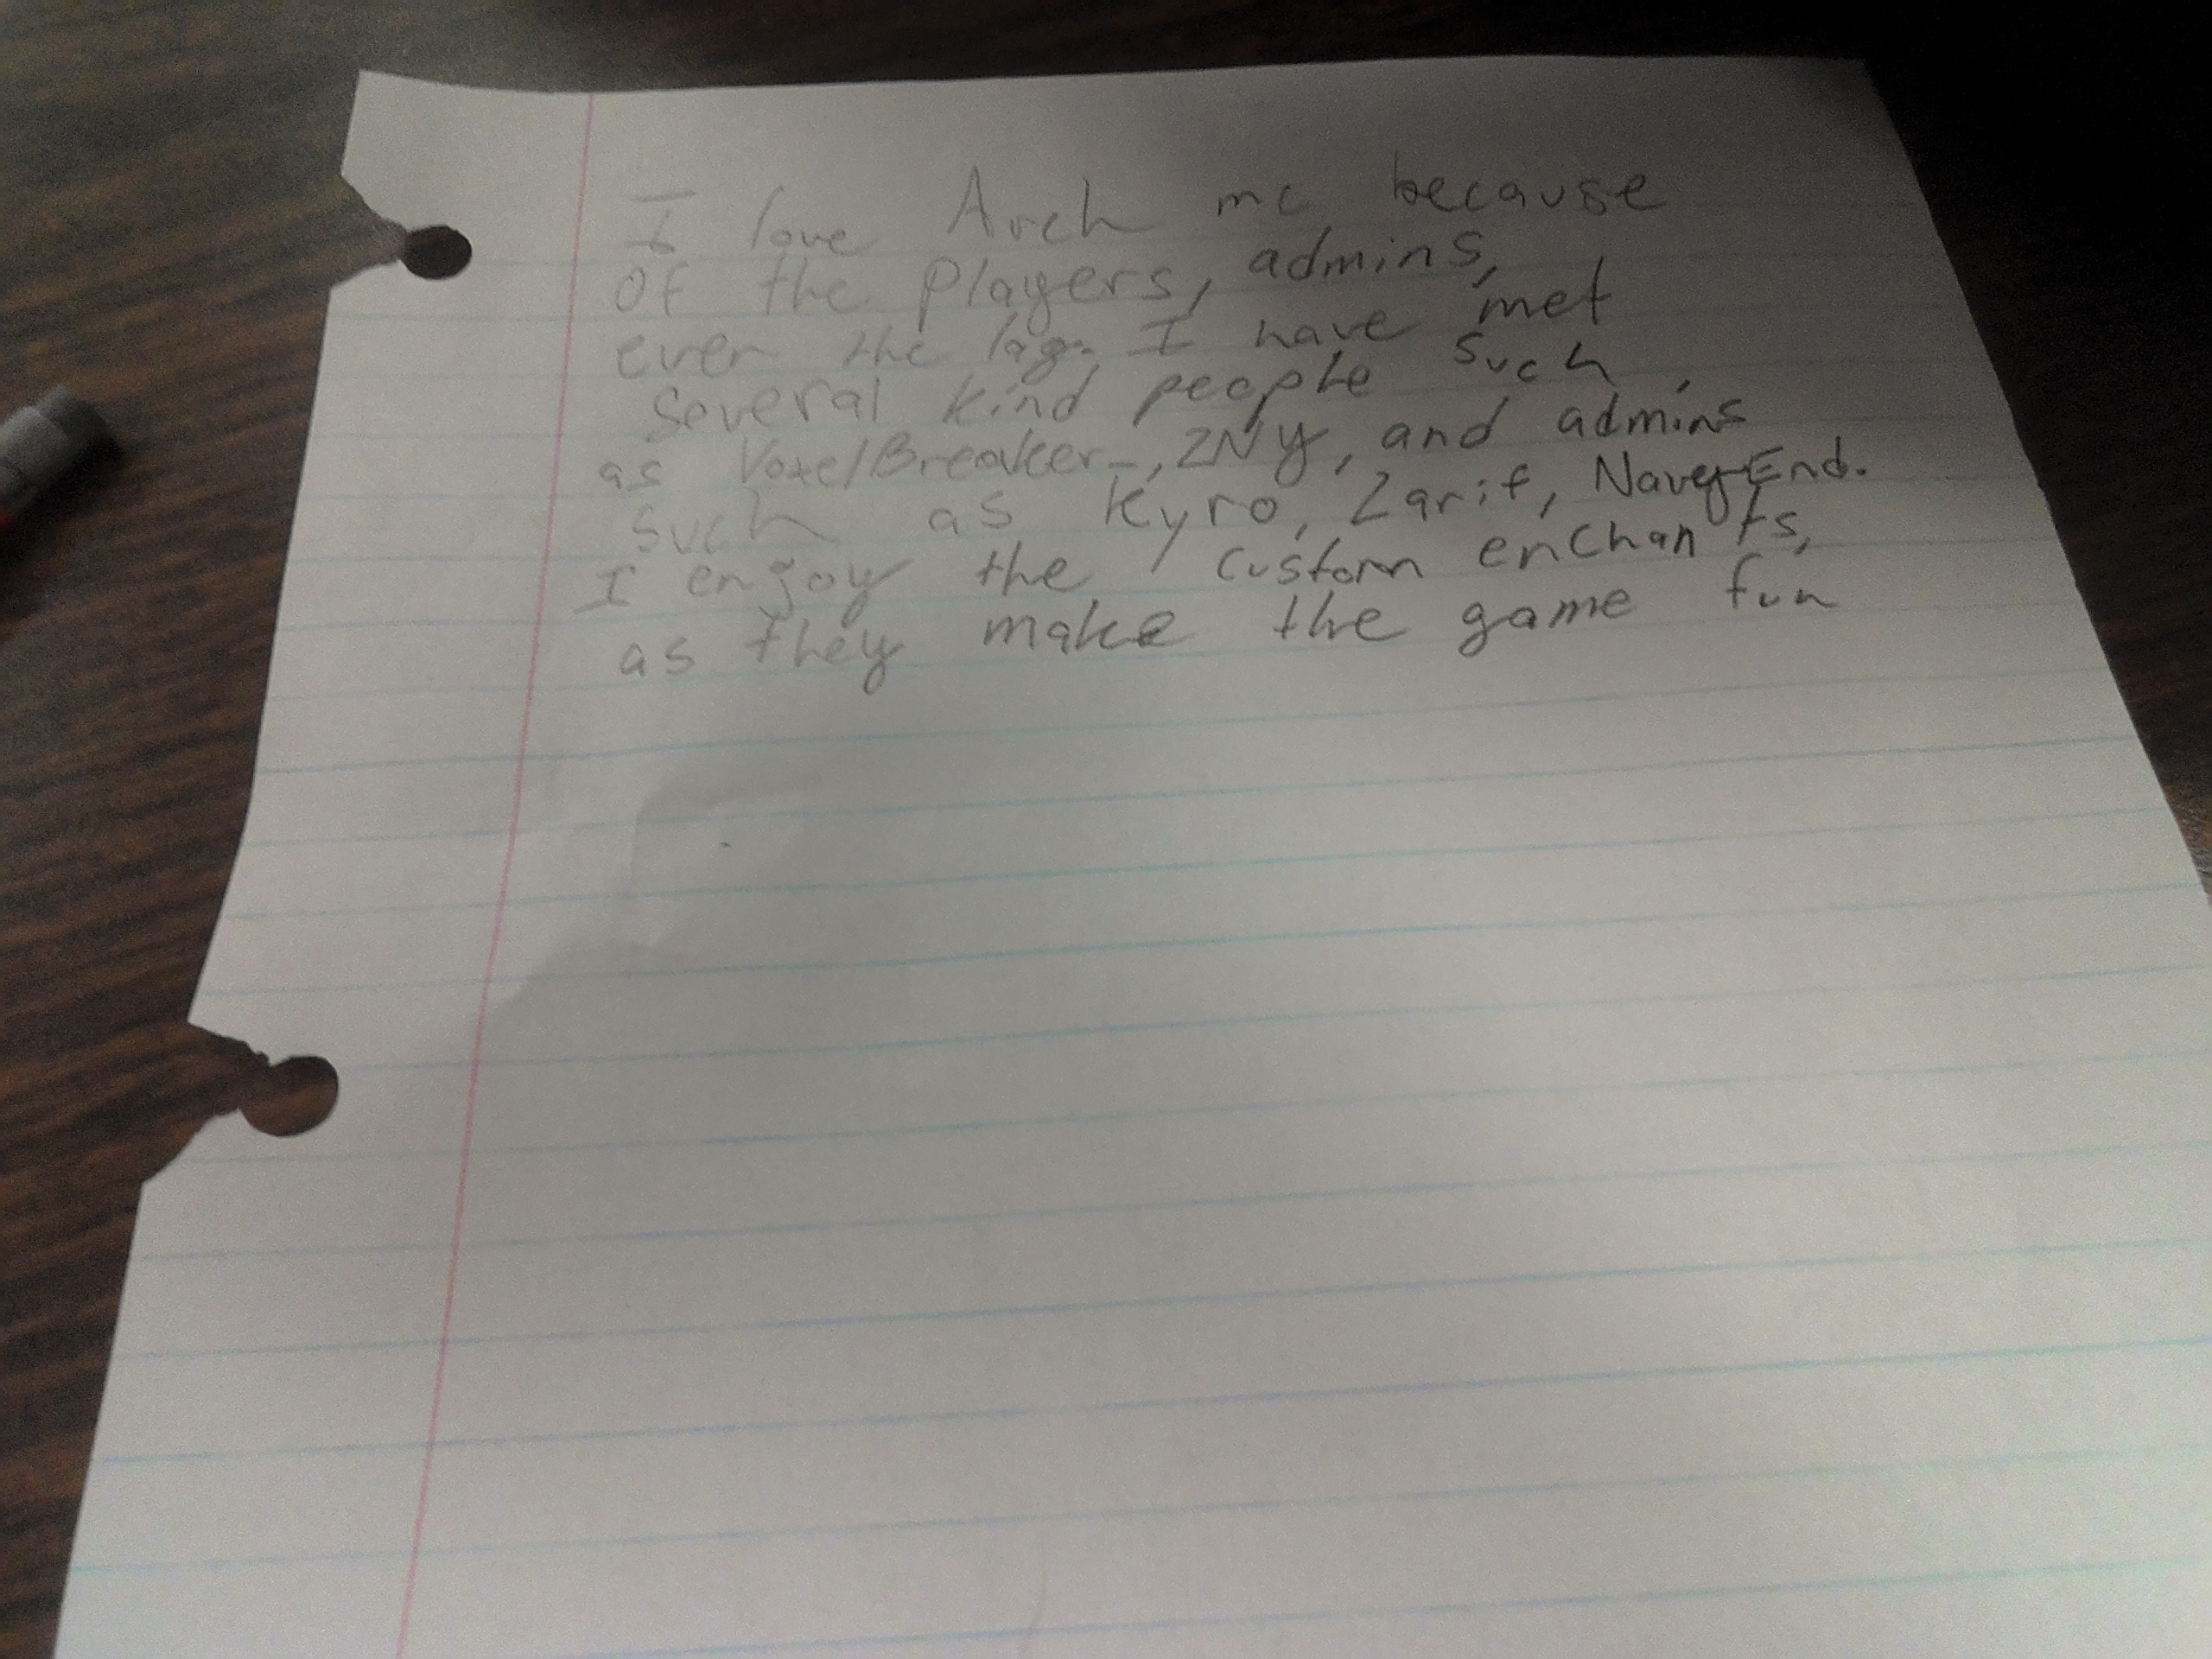 I love Arch mc because
of the players, admins,
even the lag. I have met
several kind people such
as VoxelBreaker_, ZNy, and admins
such as Kyro, Zarif, NaverEnd.
I enjoy the custom enchants,
as they make the game fun